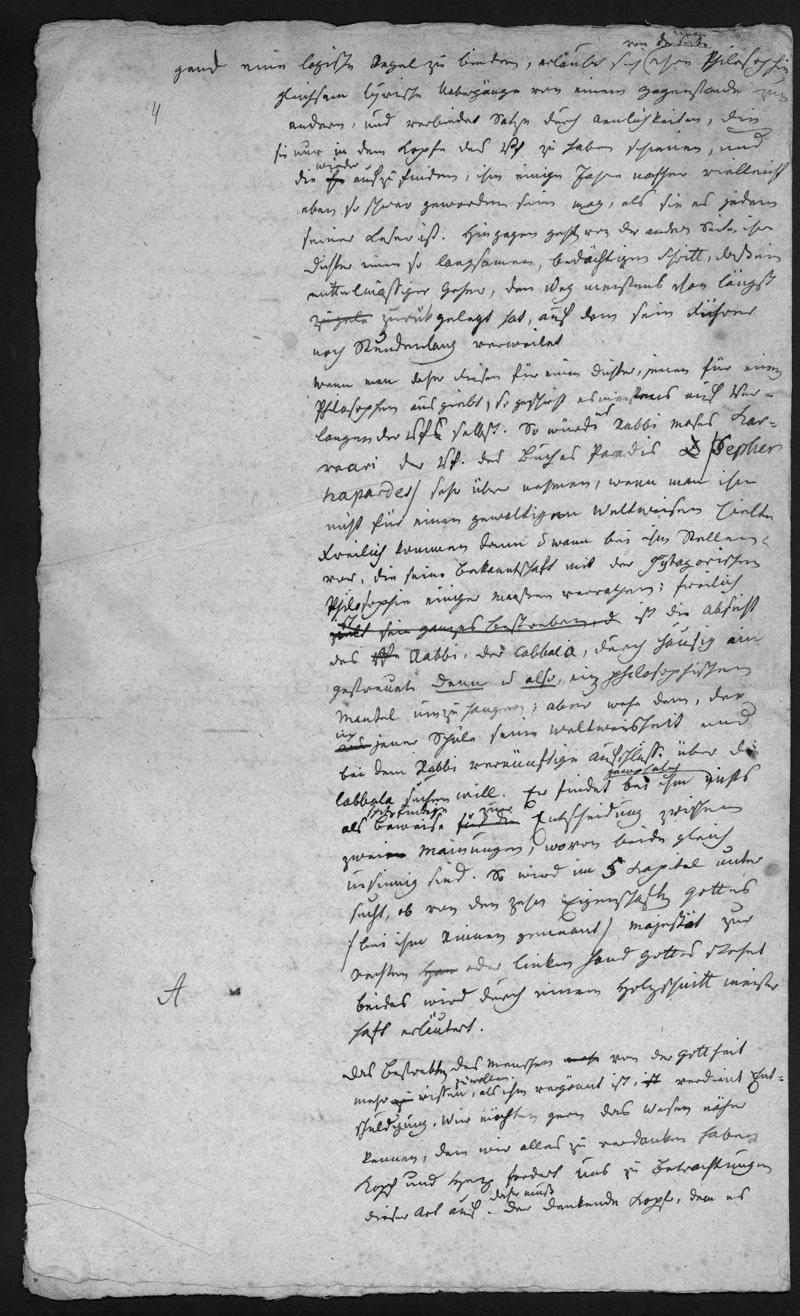 von der einen Seite
gend eine logische Regel zu binden, erlaubt sich ihre Philosophie
gleichsam lyrische Uebergänge von einem Gegenstande zum
4
andern, und verbindet Sätze durch Aenlichkeiten, die
sie nur in dem Kopfe des Vf zu haben scheinen, und
wieder
die aufzufinden, ihm einige Jahre nachher vielleicht
eben so schwer geworden sein mag, als sie es jedem
seiner Leser ist. Hingegen geht von der andern Seite, ihr
Dichter einen so langsamen, bedächtigen Schritt, daß ein
mittelmässiger Geher, den Weg meistens schon längst
zurük gelegt hat, auf dem sein Führer
noch Stundenlang verweilet
Wenn man daher diesen für einen Dichter, jenen für einen
Philosophen ausgiebt, so geschieht es meistens auf Ver-
langen der Vfs selbst. So würde es Rabbi Moses Kor-
der Vf. des Buches Paradis (Sepher
hapardes) sehr übel nehmen, wenn man ihn
nicht für einen gewaltigen Weltweisen hielte
Freilich kommen dann u wann bei ihm Stellen
vor, die seine Bekanntschaft mit der Pytagorischen
Philosophie einiger maassen verrathen; freilich
sein ganzes Bestreben ist die Absicht
des Rabbi, der Cabbala, durch häufig ein
gestreute Denn u also, ein philosophischen
Mantel umzuhangen; aber wehe dem, der
in
aus jener Schule seine Weltweisheit und
bei dem Rabbi vernünftige Aufschlüsse über die
Cabbala suchen will. Er findet bei ihm nichts
gewöhnlich
als Beweise für die Entscheidung zwischen
zur
zween Mainungen, wovon beide gleich
unsinnig sind. So wird im 5 Kapitel unter
sucht, ob von den zehn Eigenschaften Gottes
(bei ihm Rinnen genannt) Majestät zur
rechten oder linken Hand Gottes stehet
A
beides wird durch einen Holzschnitt meister
haft erläutert.
Das Bestreben des Menschen von der Gottheit
mehr wissen zu wollen, als ihm vergönnt ist, verdient Ent-
schuldigung. Wir möchten gern das Wesen näher
kennen, dem wir alles zu verdanken haben
Kopf und Herz fordert uns zu Betrachtungen
dieser Art auf. Der denkende Kopf, dem es
daher muß